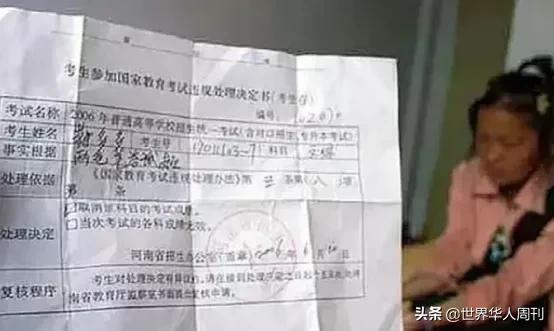 考生参加国家教育考试违规处理决定书(考生存)
编号:
考试名称 2006年普通高等学校招生统一考试(含对口招生、专升本考试)
考生姓名 考生号 科目
事实根据
处理依据 《国家教育考试违规处理办法》第 条第 项
第 条
处理决定 □取消该科目的考试成绩。
□当次考试的各科成绩无效。
河南省招生办公室(盖章) 2006年6月 日
复核程序 考生对处理决定有异议的,请在接到处理决定之日起十五天内,
南省教育厅监察室书面提出复核申请。
头条 @世界华人周刊